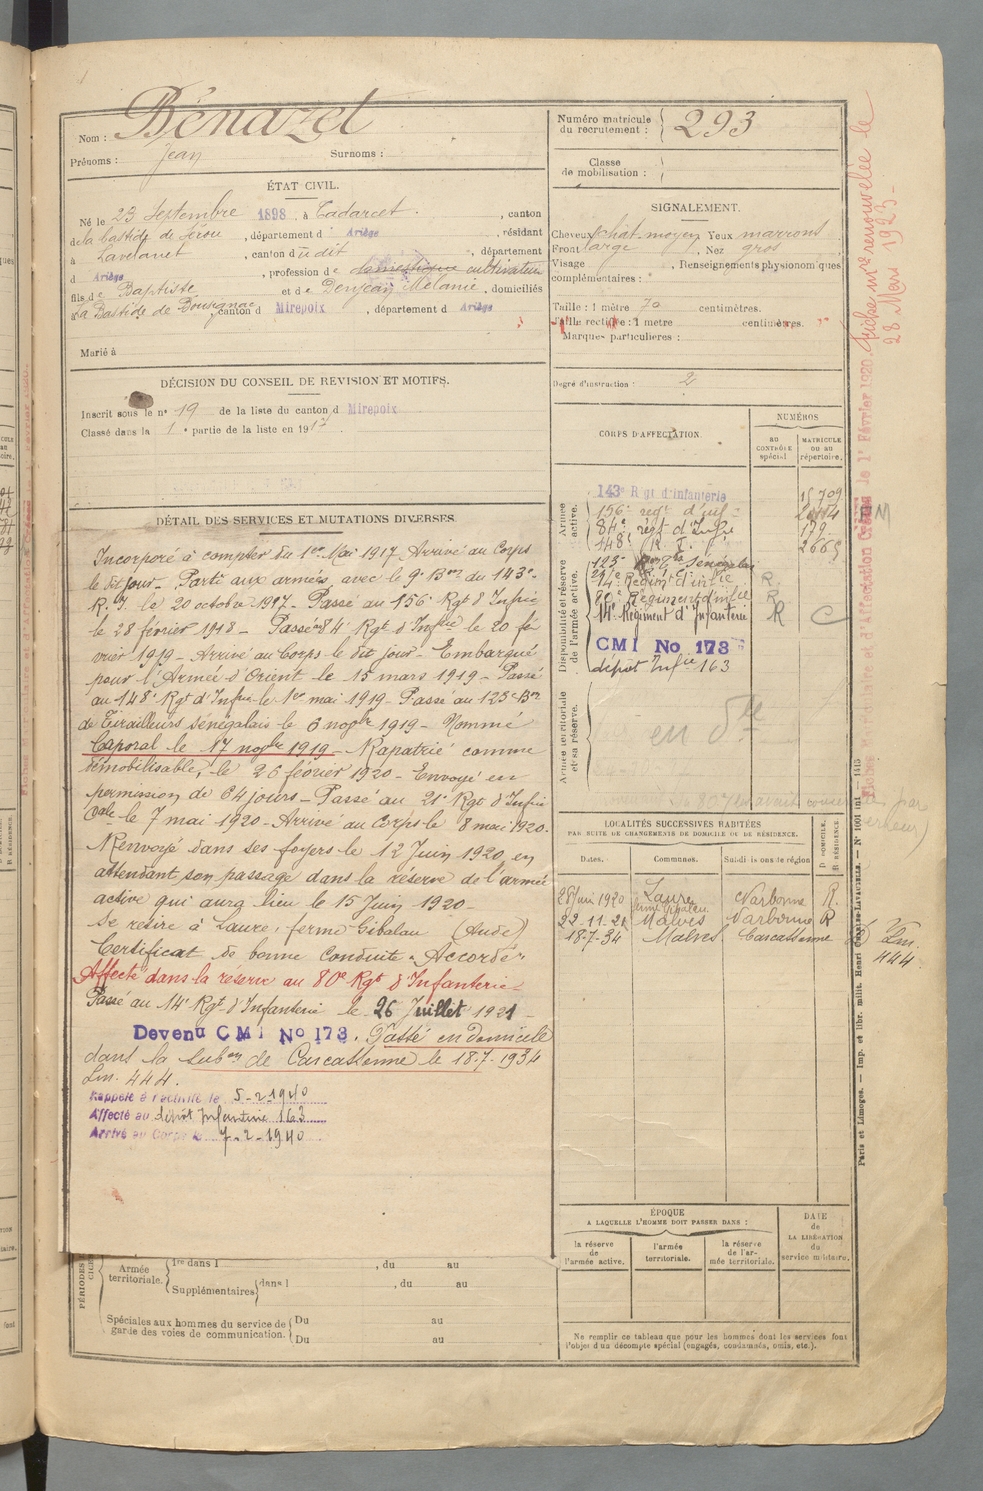 Nom : Bénazet
Prénoms : Jean Surnoms :
Numéro matricule du recrutement : 293
Classe de mobilisation :
ÉTAT CIVIL.
Né le 23 Septembre 1898, à Cadarcet, canton
de la Bastide de Sérou, département d Ariège, résidant
à Lavelanet, canton du dit, département
d Ariège, profession de domestique cultivateur
fils de Baptiste et de Denjean Mélanie, domiciliés
à La Bastide de Bousignac, canton d Mirepoix, département d Ariège
Marié à
SIGNALEMENT.
Cheveux chat. moyen Yeux marrons
Front large, Nez gros
Visage , Renseignements physionomiques
complémentaires :
Taille : 1 mètre 70 centimètres.
Taille rectifiée : 1 mètre centimètres.
Marques particulières :
Degré d'instruction : 2
Fiche mle renouvelée le
28 Mars 1923-
DÉCISION DU CONSEIL DE REVISION ET MOTIFS.
Inscrit sous le n° 19 de la liste du canton d Mirepoix
Classé dans la 1e partie de la liste en 1917.
DÉTAIL DES SERVICES ET MUTATIONS DIVERSES
Incorporé à compter du 1er Mai 1917 Arrivé au Corps
le dit jour. Parti aux armées avec le 9e Bon du 143e
R.I. le 20 octobre 1917 - Passé au 156e Rgt d'Infie
le 28 février 1918 - Passé 84e Rgt d'Infie le 20 fé
vrier 1919 - Arrivé au Corps le dit jour - Embarqué
pour l'Armée d'Orient le 15 mars 1919 - Passé
au 148e Rgt d'Infie le 1er mai 1919 - Passé au 123e Bon
de Tirailleurs Sénégalais le 6 novbre 1919 - Nommé
Caporal le 17 novbre 1919 - Rapatrié comme
démobilisable, le 26 février 1920 - Envoyé en
permission de 64 jours - Passé au 21e Rgt d'Infie
Cale le 7 mai 1920 - Arrivé au Corps le 8 mai 1920.
Renvoyé dans ses foyers le 12 Juin 1920, en
attendant son passage dans la réserve de l'armée
active qui aura lieu le 15 Juin 1920 -
Se retire à Laure, ferme Gibalau (Aude)
Certificat de bonne conduite "Accordé"
Affecté dans la réserve au 80e Rgt d'Infanterie
Passé au 14e Rgt d'Infanterie le 26 Juillet 1921 -
Devenu CMI No 173. Passé en domicile
dans la subon de Carcassonne le 18-7-1934
Lm. 444.
Rappelé à l'activité le 5-2-1940
Affecté au dépôt Infanterie 163
Arrivé au Corps le 7-2-1940
CORPS D'AFFECTATION
NUMÉROS
au CONTRÔLE spécial
MATRICULE OU AU répertoire.
Armée active.
143e Rgt d'Infanterie 15709
156e regt d'inf
84e régt d'Infie 179
148e R.I. 2665
Disponibilité et réserve de l'armée active.
80e Régiment d'infie R
14e Régiment d'Infanterie R C
CMI No 173
dépôt Infie 163
Armée territoriale et sa réserve.
LOCALITÉS SUCCESSIVES HABITÉES
PAR SUITE DE CHANGEMENTS DE DOMICILE OU DE RÉSIDENCE.
D DOMICILE. R RÉSIDENCE.
Dates. Communes. Subdivisions de région
Juin 1920 Laure Narbonne R.
22-11-21 Malves Narbonne R
18-7-34 Malves Carcassonne D Lm. 444
ÉPOQUE
A LAQUELLE L'HOMME DOIT PASSER DANS :
la réserve de l'armée active.
l'armée territoriale.
la réserve de l'armée territoriale.
DATE de LA LIBÉRATION du service militaire.
Armée territoriale. 1re dans l , du au
Supplémentaires dans l , du au
Spéciales aux hommes du service de garde des voies de communication. Du au
Du au
Ne remplir ce tableau que pour les hommes dont les services font
l'objet d'un décompte spécial (engagés, condamnés, omis, etc.).
Paris et Limoges. — Imp. et libr. milit. Henri Charles-Lavauzelle. — N° 1001